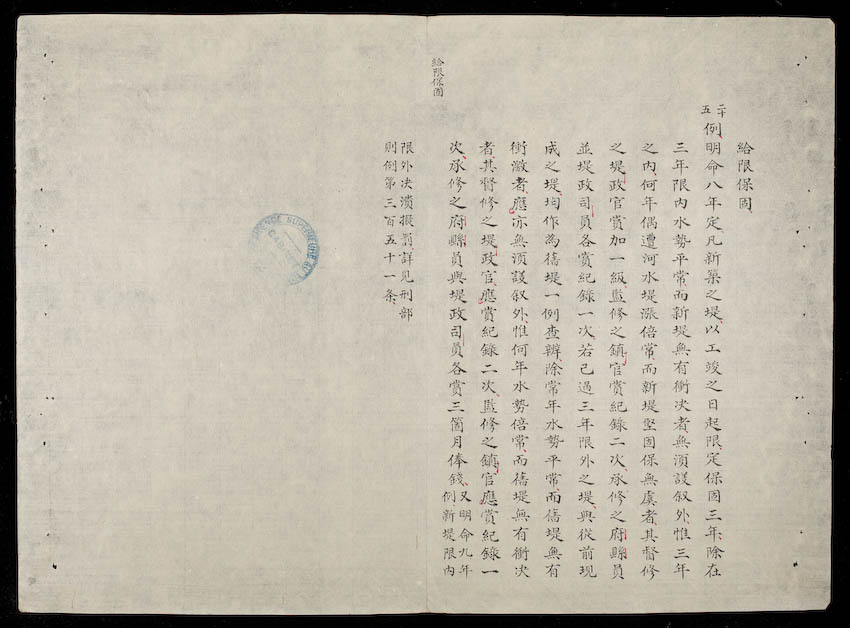 給限保固
給限保固
二十五
例明命八年定凡新築之堤以工竣之日起限定保固三年除在
三年限内水勢平常而新堤無有衝決者無須議叙外惟三年
之内何年偶遭河水堤漲倍常而新堤堅固保無虞者其督修
之堤政官賞加一級監修之鎮官賞紀錄二次承修之府縣員
並堤政司員各賞紀錄一次若已過三年限外之堤與從前現
成之堤均作為舊堤一例查辨除常年水勢平常而舊堤無有
衝激者應亦無須議叙外惟何年水勢倍常而舊堤無有衝決
者其督修之堤政官應賞紀錄二次監修之鎮官應賞紀錄一
次承修之府縣員與堤政司員各賞三箇月俸錢又明命九年
例新堤限内
限外决潰擬罰詳見刑部
則例第三百五十一條